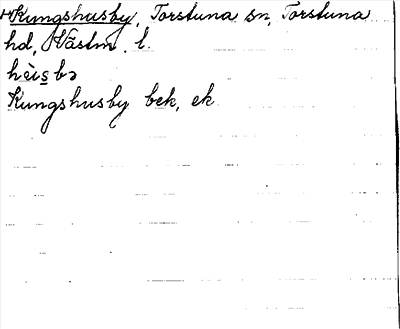 Kungshusby, Torstuna sn, Torstuna
hd, Västm. l.
hèisbə
Kungshusby bek, ek